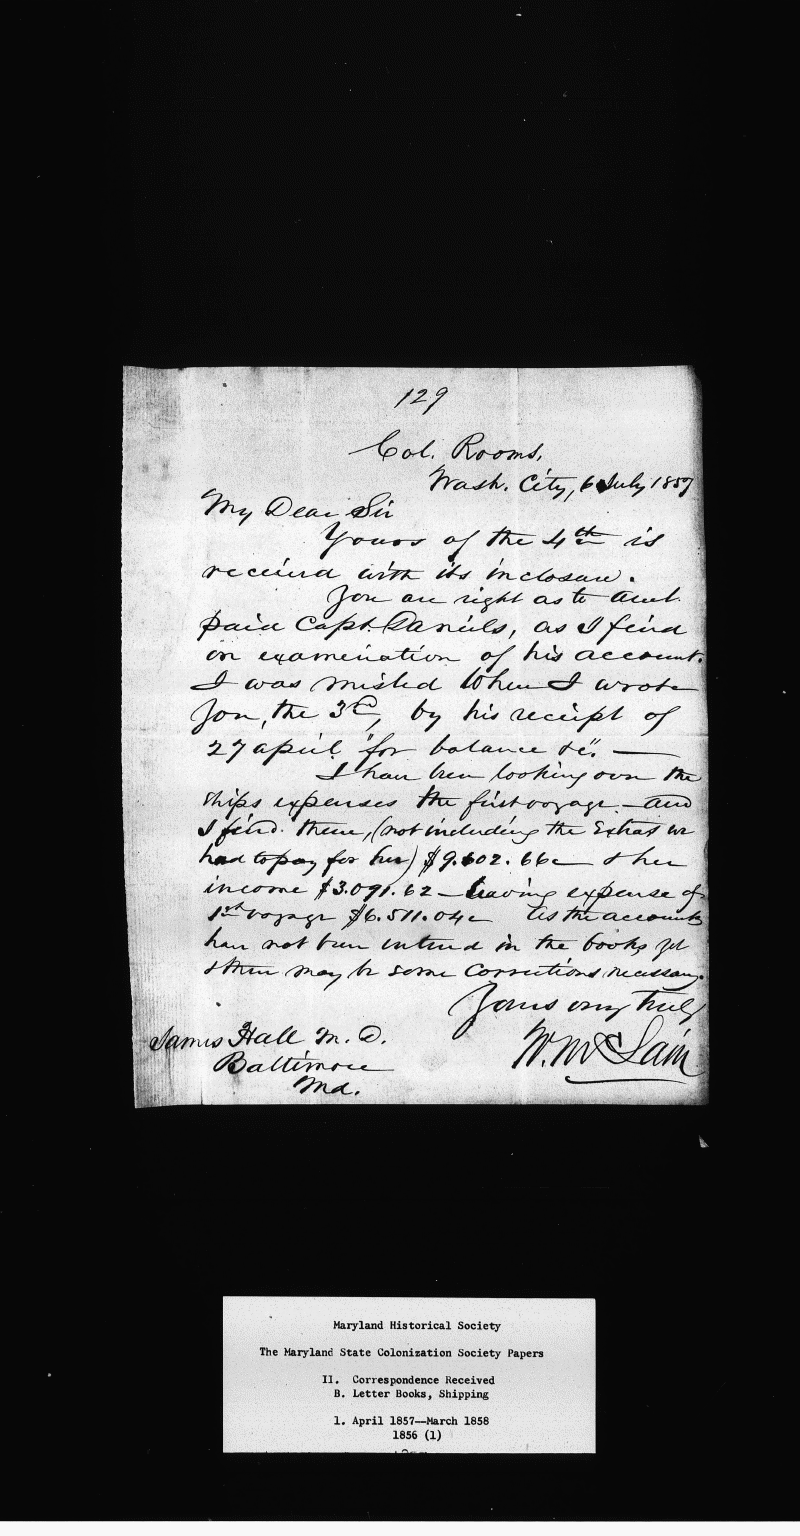 129
Col. Rooms,
Wash. City, 6 July 1857
My Dear Sir
Yours of the 4th is
received with its inclosure.
You are right as to amt.
paid Capt. Daniels, as I find
on examination of his account.
I was misled when I wrote
you, the 3d, by his receipt of
27 april "for balance &c". —
I have been looking over the
ships expenses the first voyage — and
I find them, (not including the Extras we
had to pay for her) $9.602.66c — & her
income $3.091.62 — leaving expense of
1st voyage $6.511.04c As the accounts
have not been entered in the books yet
& there may be some corrections necessary.
Yours very truly
W. McLain
James Hall M. D.
Baltimore
Md.
Maryland Historical Society
The Maryland State Colonization Society Papers
II. Correspondence Received
B. Letter Books, Shipping
1. April 1857--March 1858
1856 (1)